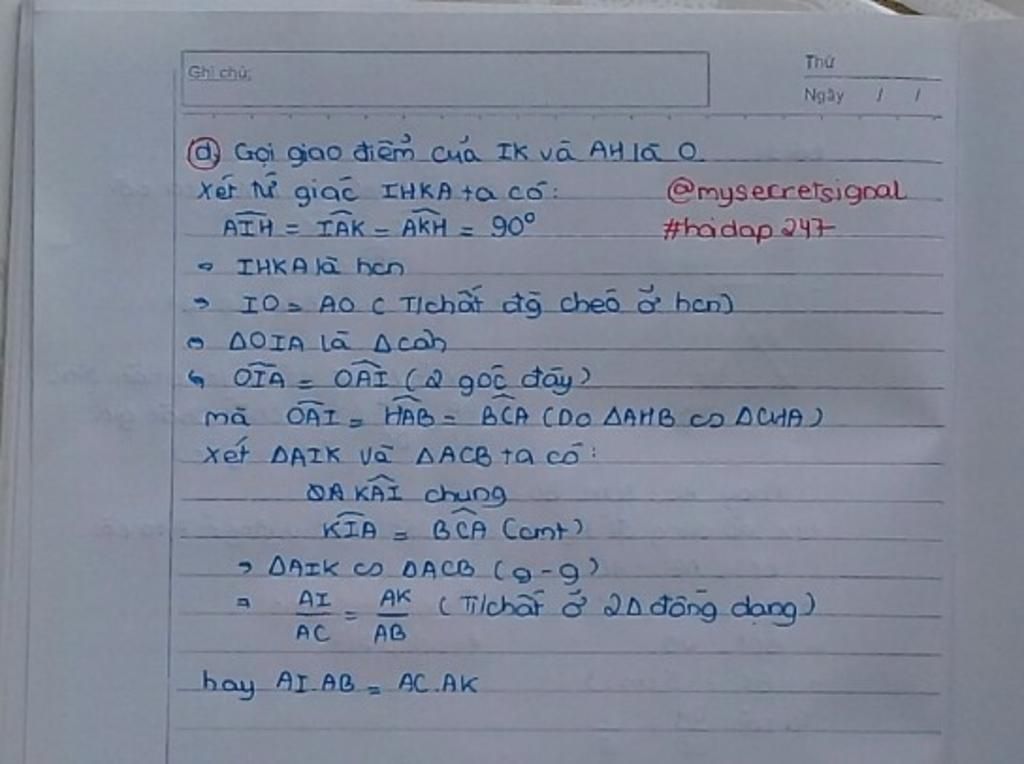 Ghi chú:
Thứ
Ngày / /
d) Gọi giao điểm của IK và AH là O
Xét tứ giác IHKA ta có:
@mysecretsignal
AIH = IAK = AKH = 90°
#hoidap247
⇒ IHKA là hcn
⇒ IO = AO (T/chất đg chéo ở hcn)
⇒ ΔOIA là Δcân
↳ OIA = OAI (2 góc đáy)
mà OAI = HAB = BCA (Do ΔAHB ∽ ΔCHA)
Xét ΔAIK và ΔACB ta có:
KAI chung
KIA = BCA (cmt)
⇒ ΔAIK ∽ ΔACB (g-g)
⇒ AI/AC = AK/AB (T/chất ở 2Δ đồng dạng)
hay AI.AB = AC.AK